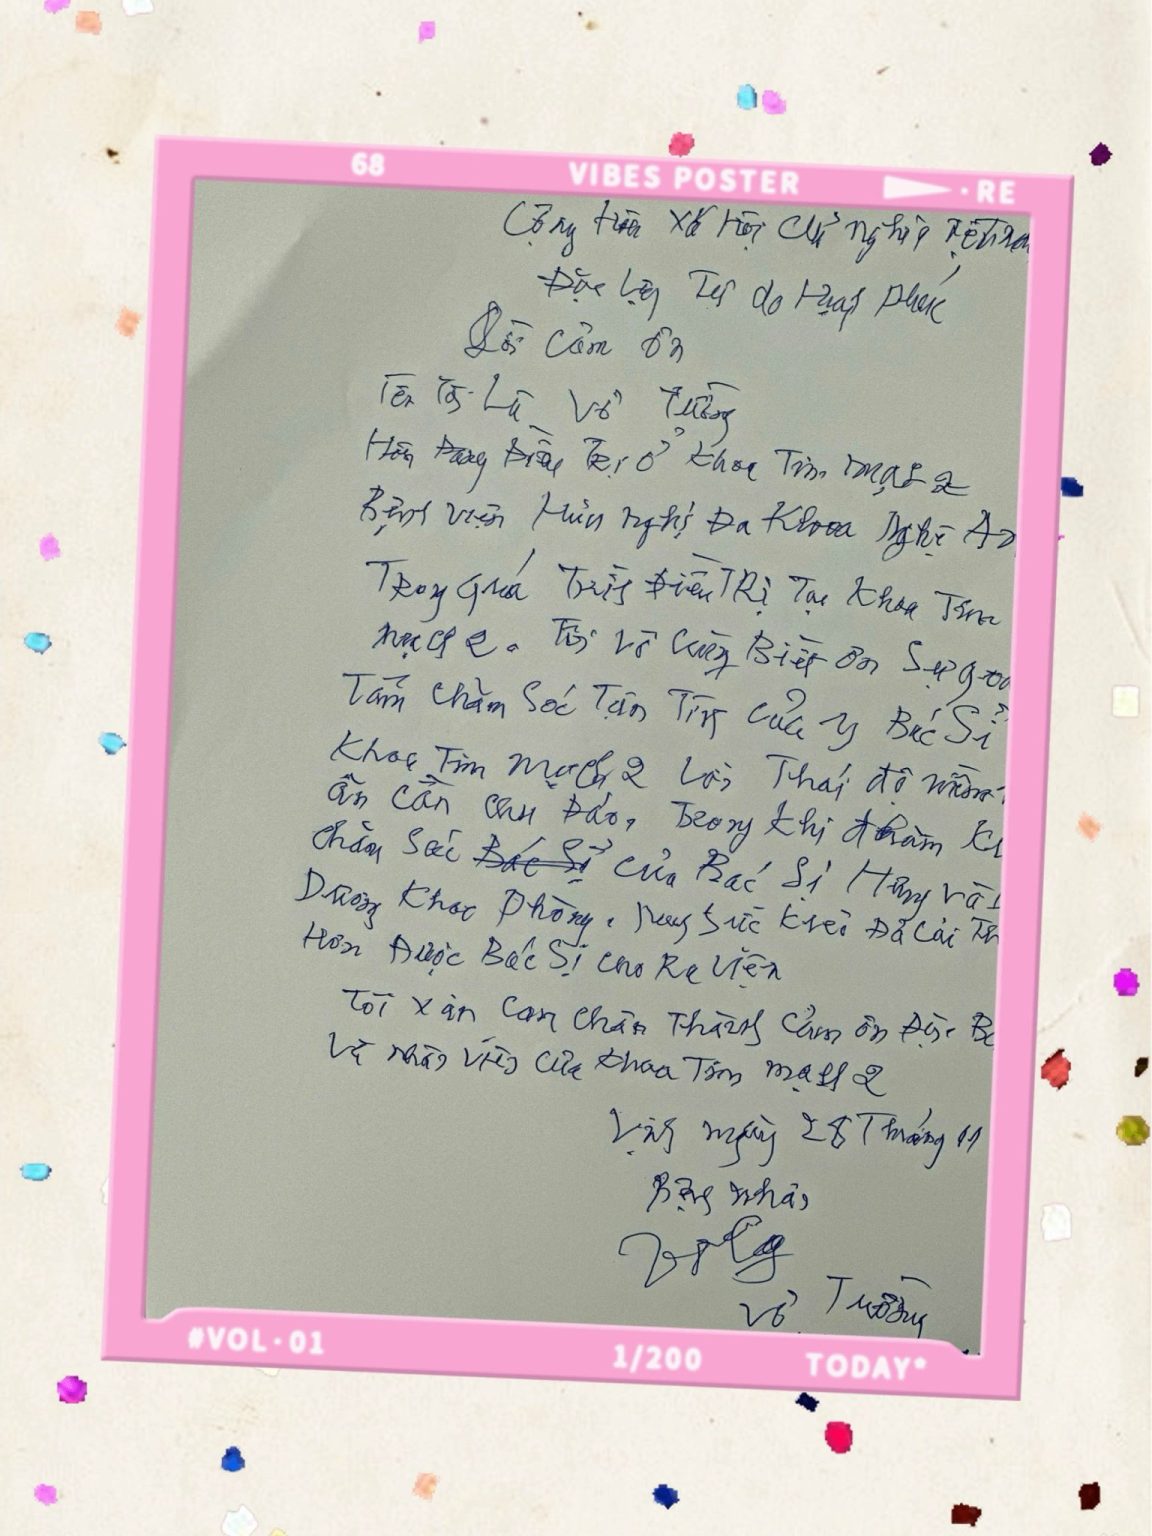 68 VIBES POSTER RE
Cộng Hòa Xã Hội Chủ Nghĩa
Độc Lập Tự do Hạnh phúc
Lời Cảm Ơn
Tên Tôi Là Võ Tường
Hiện Đang Điều Trị ở Khoa Tim mạch 2
Bệnh viện Hữu nghị Đa Khoa Nghệ An
Trong Quá Trình Điều TRị Tại Khoa Tim
mạch 2. Tôi vô cùng Biết ơn Sự
Tâm chăm Sóc Tận Tình của y Bác Sĩ
Khoa Tim mạch 2 Với Thái độ
ân cần chu Đáo, Trong khi thăm
chăm Sóc Bác Sĩ của Bác Sĩ Hùng và
Dưỡng Khoa Phòng. Đã cải
Hơn Được Bác Sĩ cho Ra viện
Tôi xin chân Thành Cảm ơn
Và nhân viên của Khoa Tim mạch 2
Vinh ngày 28 Tháng 11
Bệnh nhân
Võ Tường
#VOL·01 1/200 TODAY*